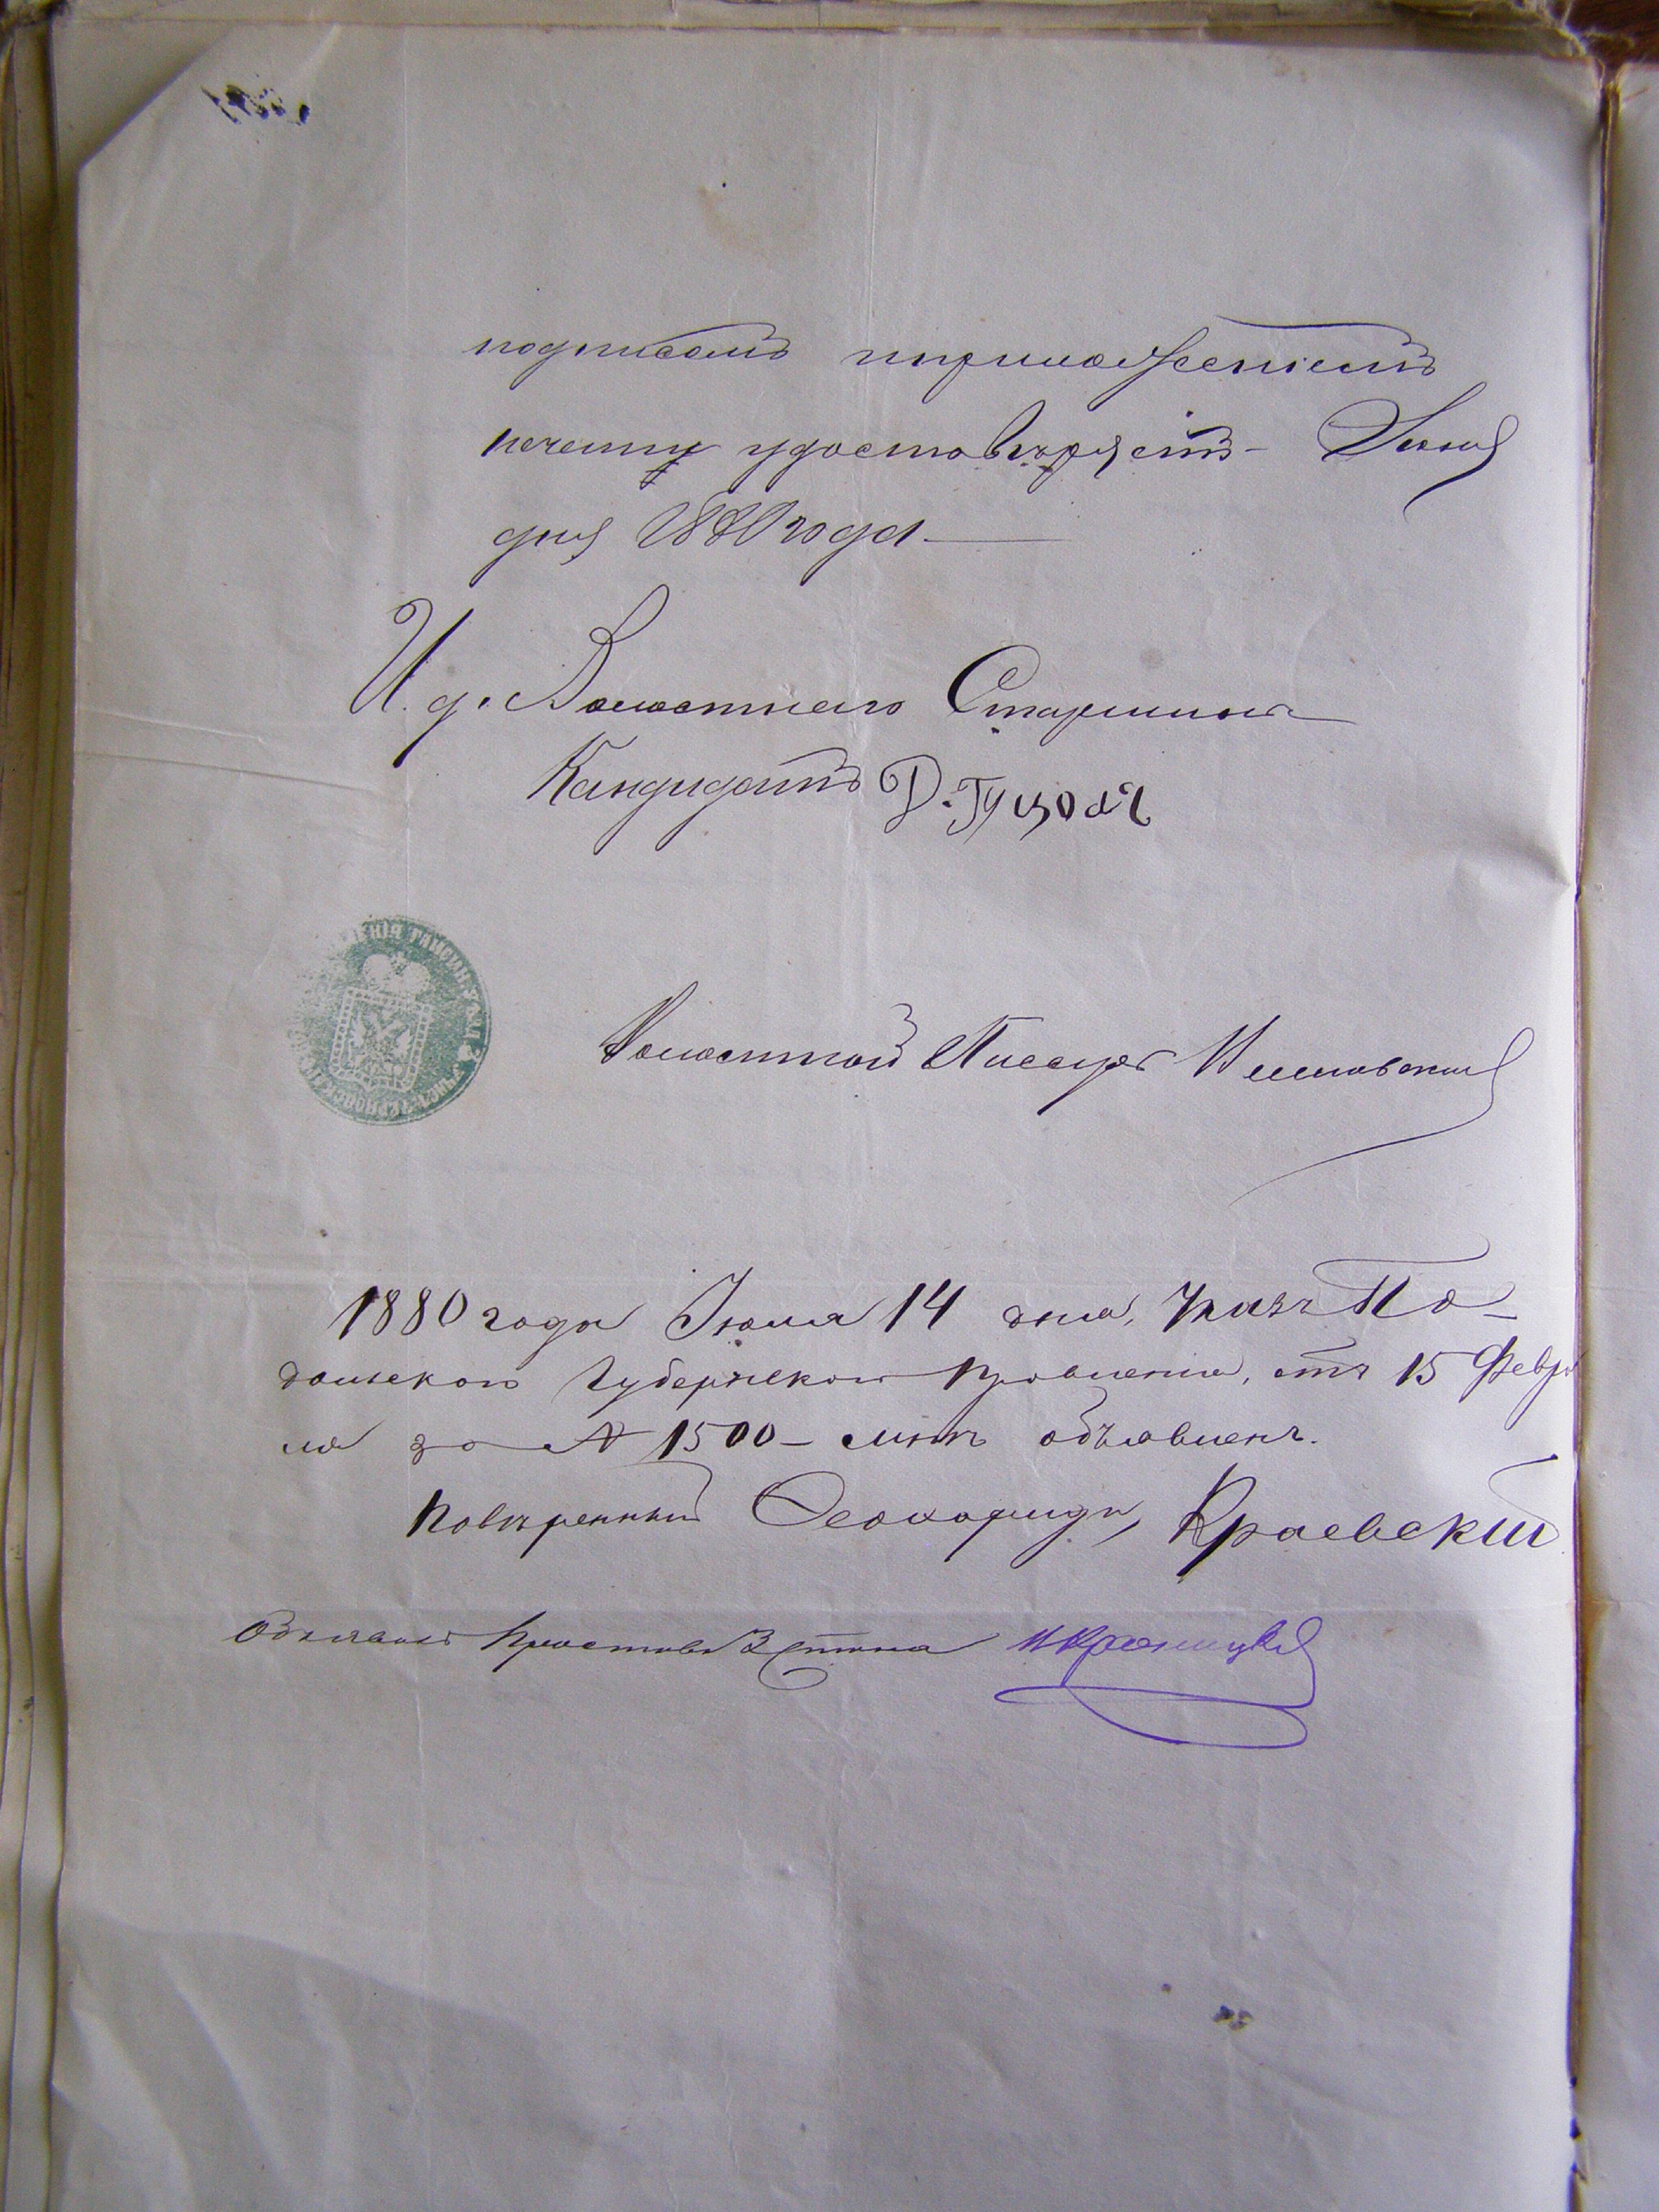 подписомъ и приложеніемъ
печати удостовѣряетъ – Іюня
дня 1880 года
И. д. Волостнаго Старшины
Кандидатъ Д.
Волостной Писарь
1880 года Іюля 14 дня, Указъ По-
дольского Губернского Правленія, отъ 15 Февра
ля за № 1500 – мнѣ объявленъ.
Повѣренный Краевскій
Объявилъ Приставъ 2 Стана